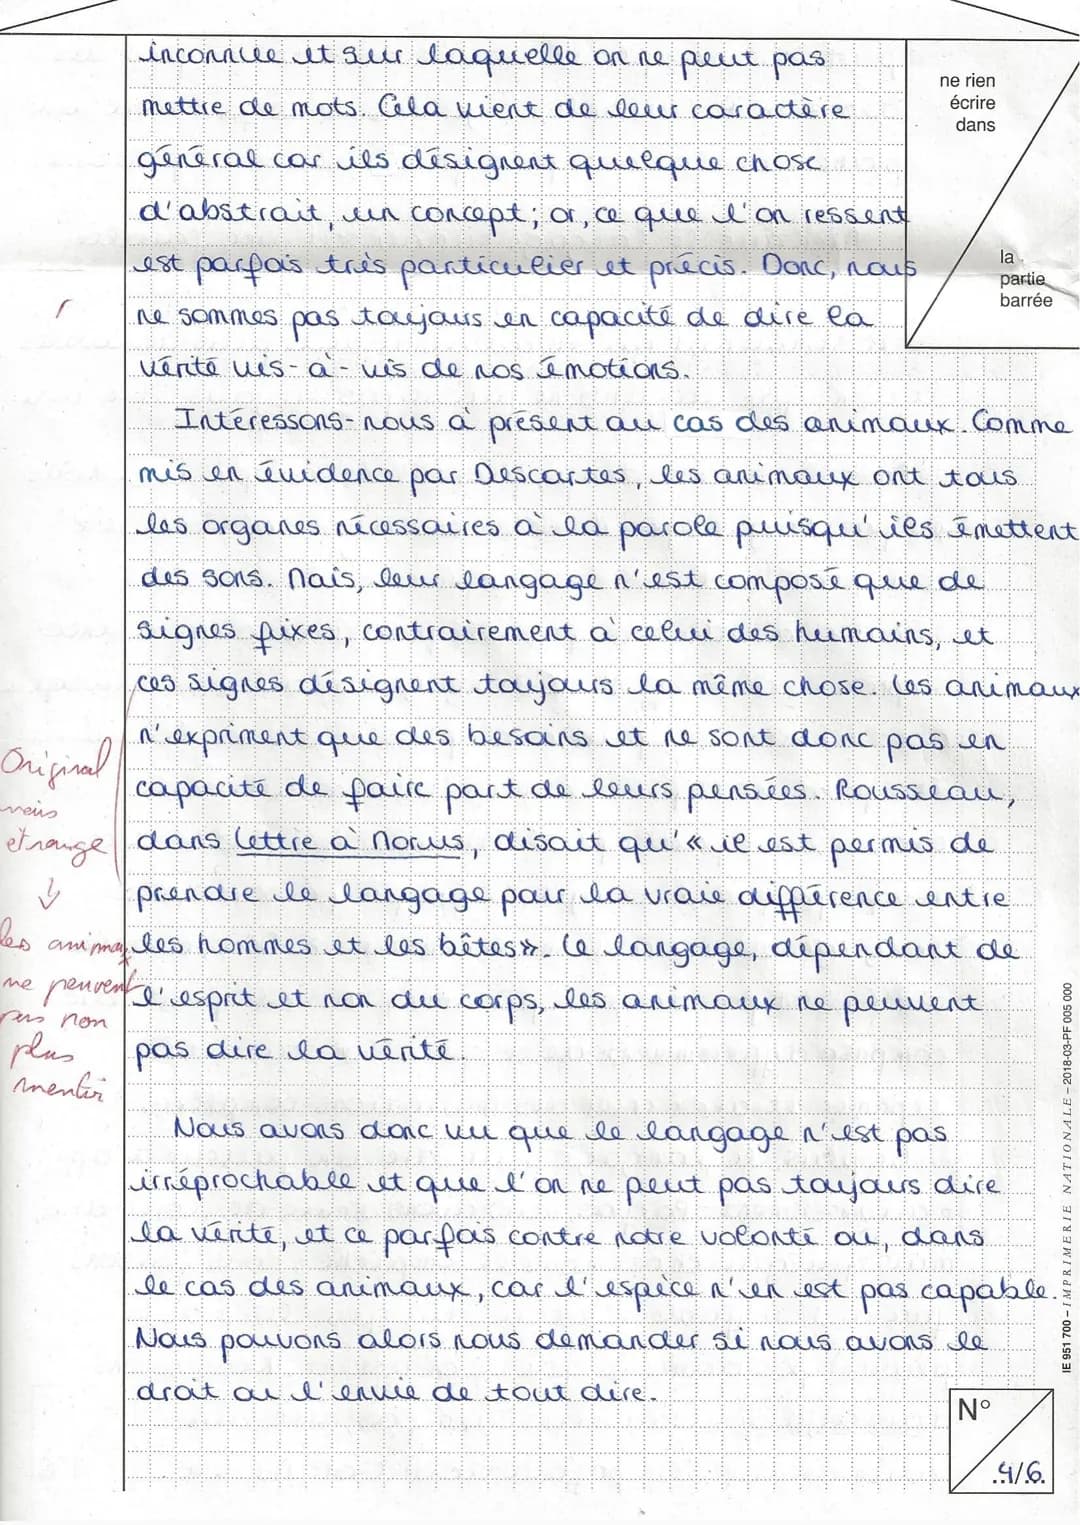 inconnue et sur laquelle on ne peut pas
mettre de mots. Cela vient de leur caractère
général car ils désignent quelque chose
d'abstrait, un concept ; or, ce que l'on ressent
est parfois très particulier et précis. Donc, nous
ne sommes pas toujours en capacité de dire la
vérité vis-à-vis de nos émotions.
Intéressons-nous à présent au cas des animaux. Comme
mis en évidence par Descartes, les animaux ont tous
les organes nécessaires à la parole puisqu'ils émettent
des sons. Mais, leur langage n'est composé que de
signes fixes, contrairement à celui des humains, et
ces signes désignent toujours la même chose. Les animaux
n'expriment que des besoins et ne sont donc pas en
capacité de faire part de leurs pensées. Rousseau,
dans Lettre à Morus, disait qu'« il est permis de
prendre le langage pour la vraie différence entre
les hommes et les bêtes ». Le langage, dépendant de
l'esprit et non du corps, les animaux ne peuvent
pas dire la vérité.
Nous avons donc vu que le langage n'est pas
irréprochable et que l'on ne peut pas toujours dire
la vérité, et ce parfois contre notre volonté ou, dans
le cas des animaux, car l'espèce n'en est pas capable.
Nous pouvons alors nous demander si nous avons le
droit ou l'envie de tout dire.
Original
mais
étrange
les animaux
ne peuvent
pas non
plus
mentir
ne rien
écrire
dans
la
partie
barrée
IE 951 700 – IMPRIMERIE NATIONALE – 2018-03-PF 005 000
N°
4/6.